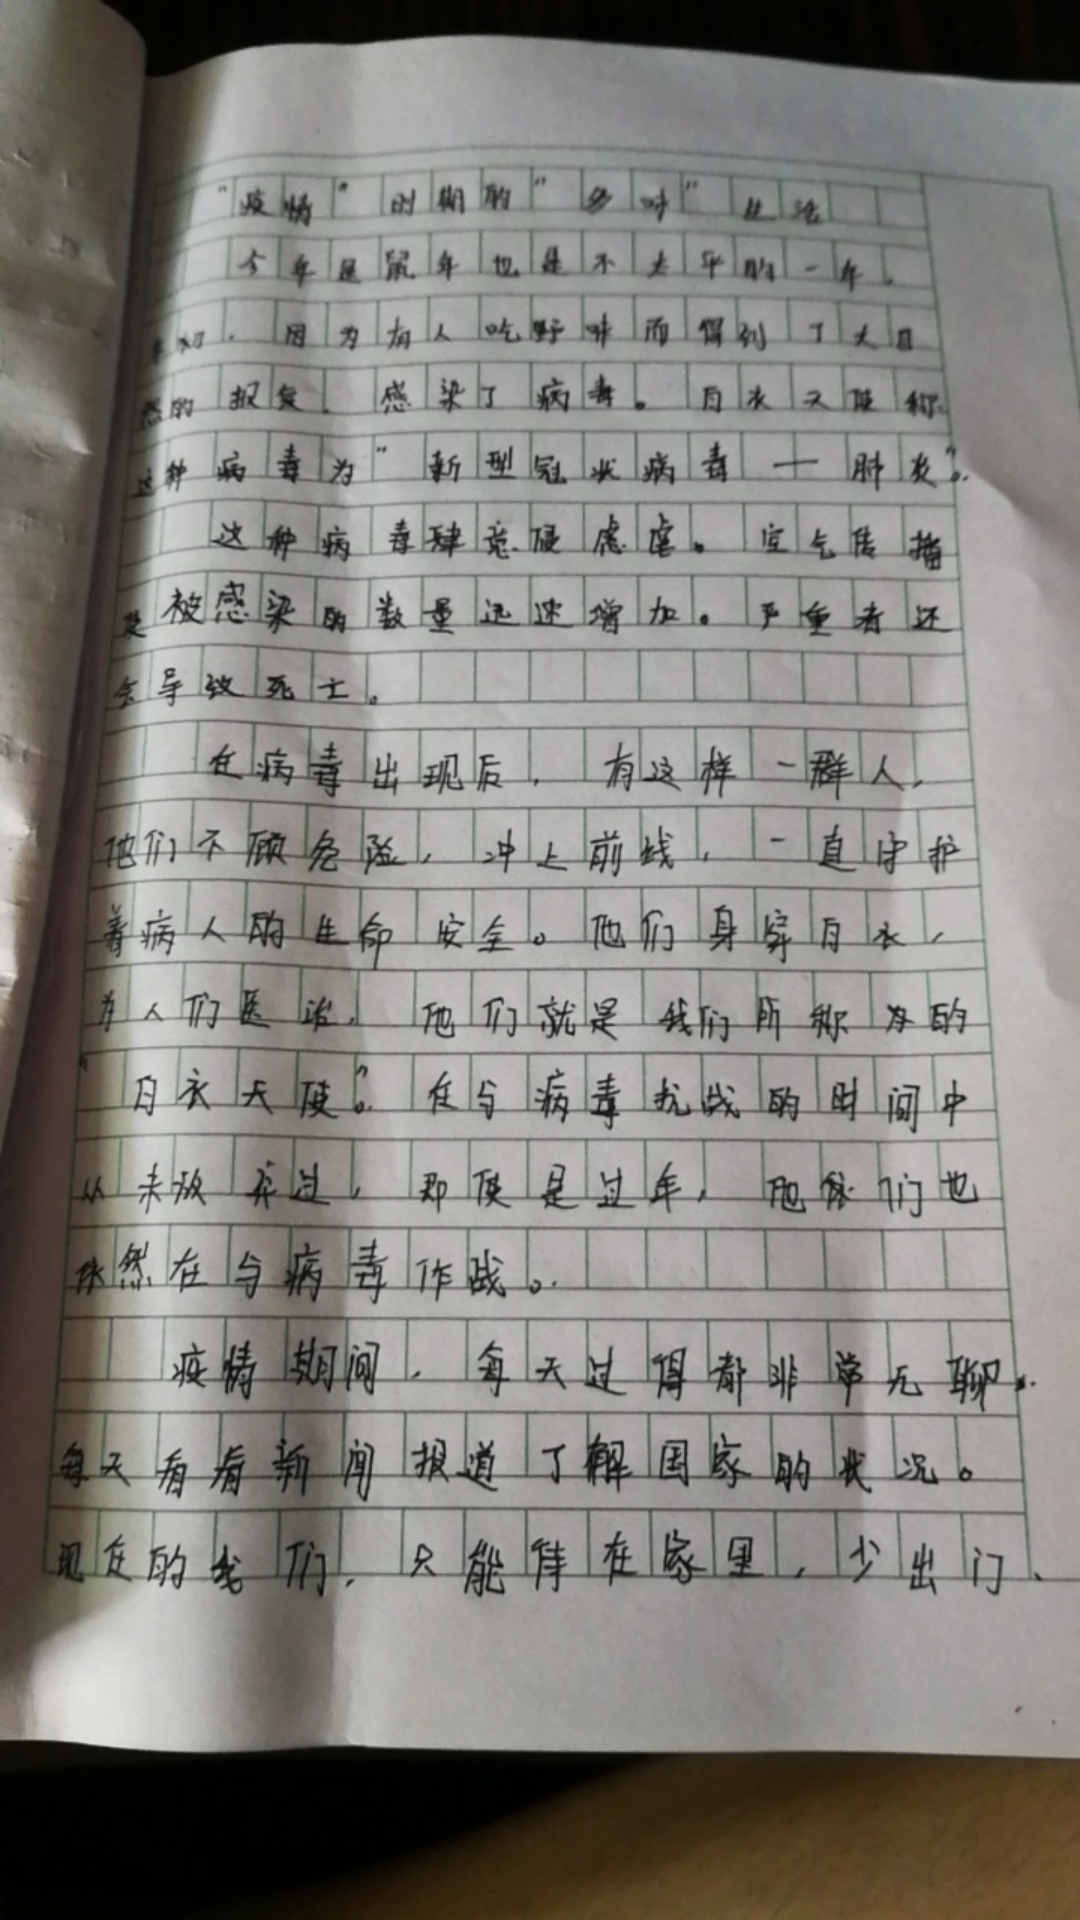 “疫情”时期的“多味”生活
今年是鼠年也是不太平的一年。
年初，因为有人吃野味而得到了大自
然的报复，感染了病毒。白衣天使称
这种病毒为“新型冠状病毒—肺炎”。
这种病毒肆意侵虐。空气传播
使被感染的数量迅速增加。严重者还
会导致死亡。
在病毒出现后，有这样一群人，
他们不顾危险，冲上前线，一直守护
着病人的生命安全。他们身穿白衣，
为人们医治，他们就是我们所称为的
“白衣天使”。在与病毒抗战的时间中
从未放弃过，即使是过年，他们也
依然在与病毒作战。
疫情期间，每天过得都非常无聊。
每天看看新闻报道了解国家的状况。
现在的我们，只能待在家里，少出门、